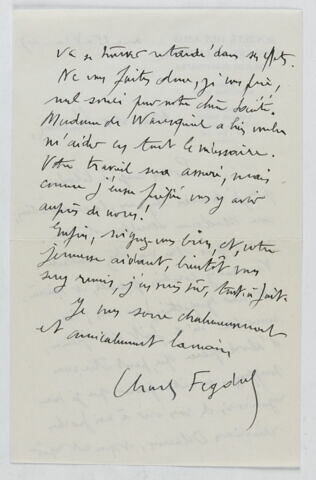 va se trouver retardé dans ses effets.
Ne vous faites donc, je vous prie,
nul souci pour notre chère Société.
Madame de Waresquiel a bien voulu
m'aider en tout le nécessaire.
Votre travail sera assuré, mais
comme j'eusse préféré vous y avoir
auprès de nous!
Enfin, soignez-vous bien, et votre
jeunesse aidant, bientôt vous
serez remis, j'en suis sûr, tout à fait.
Je vous serre chaleureusement
et amicalement la main,
Charles Fegdal